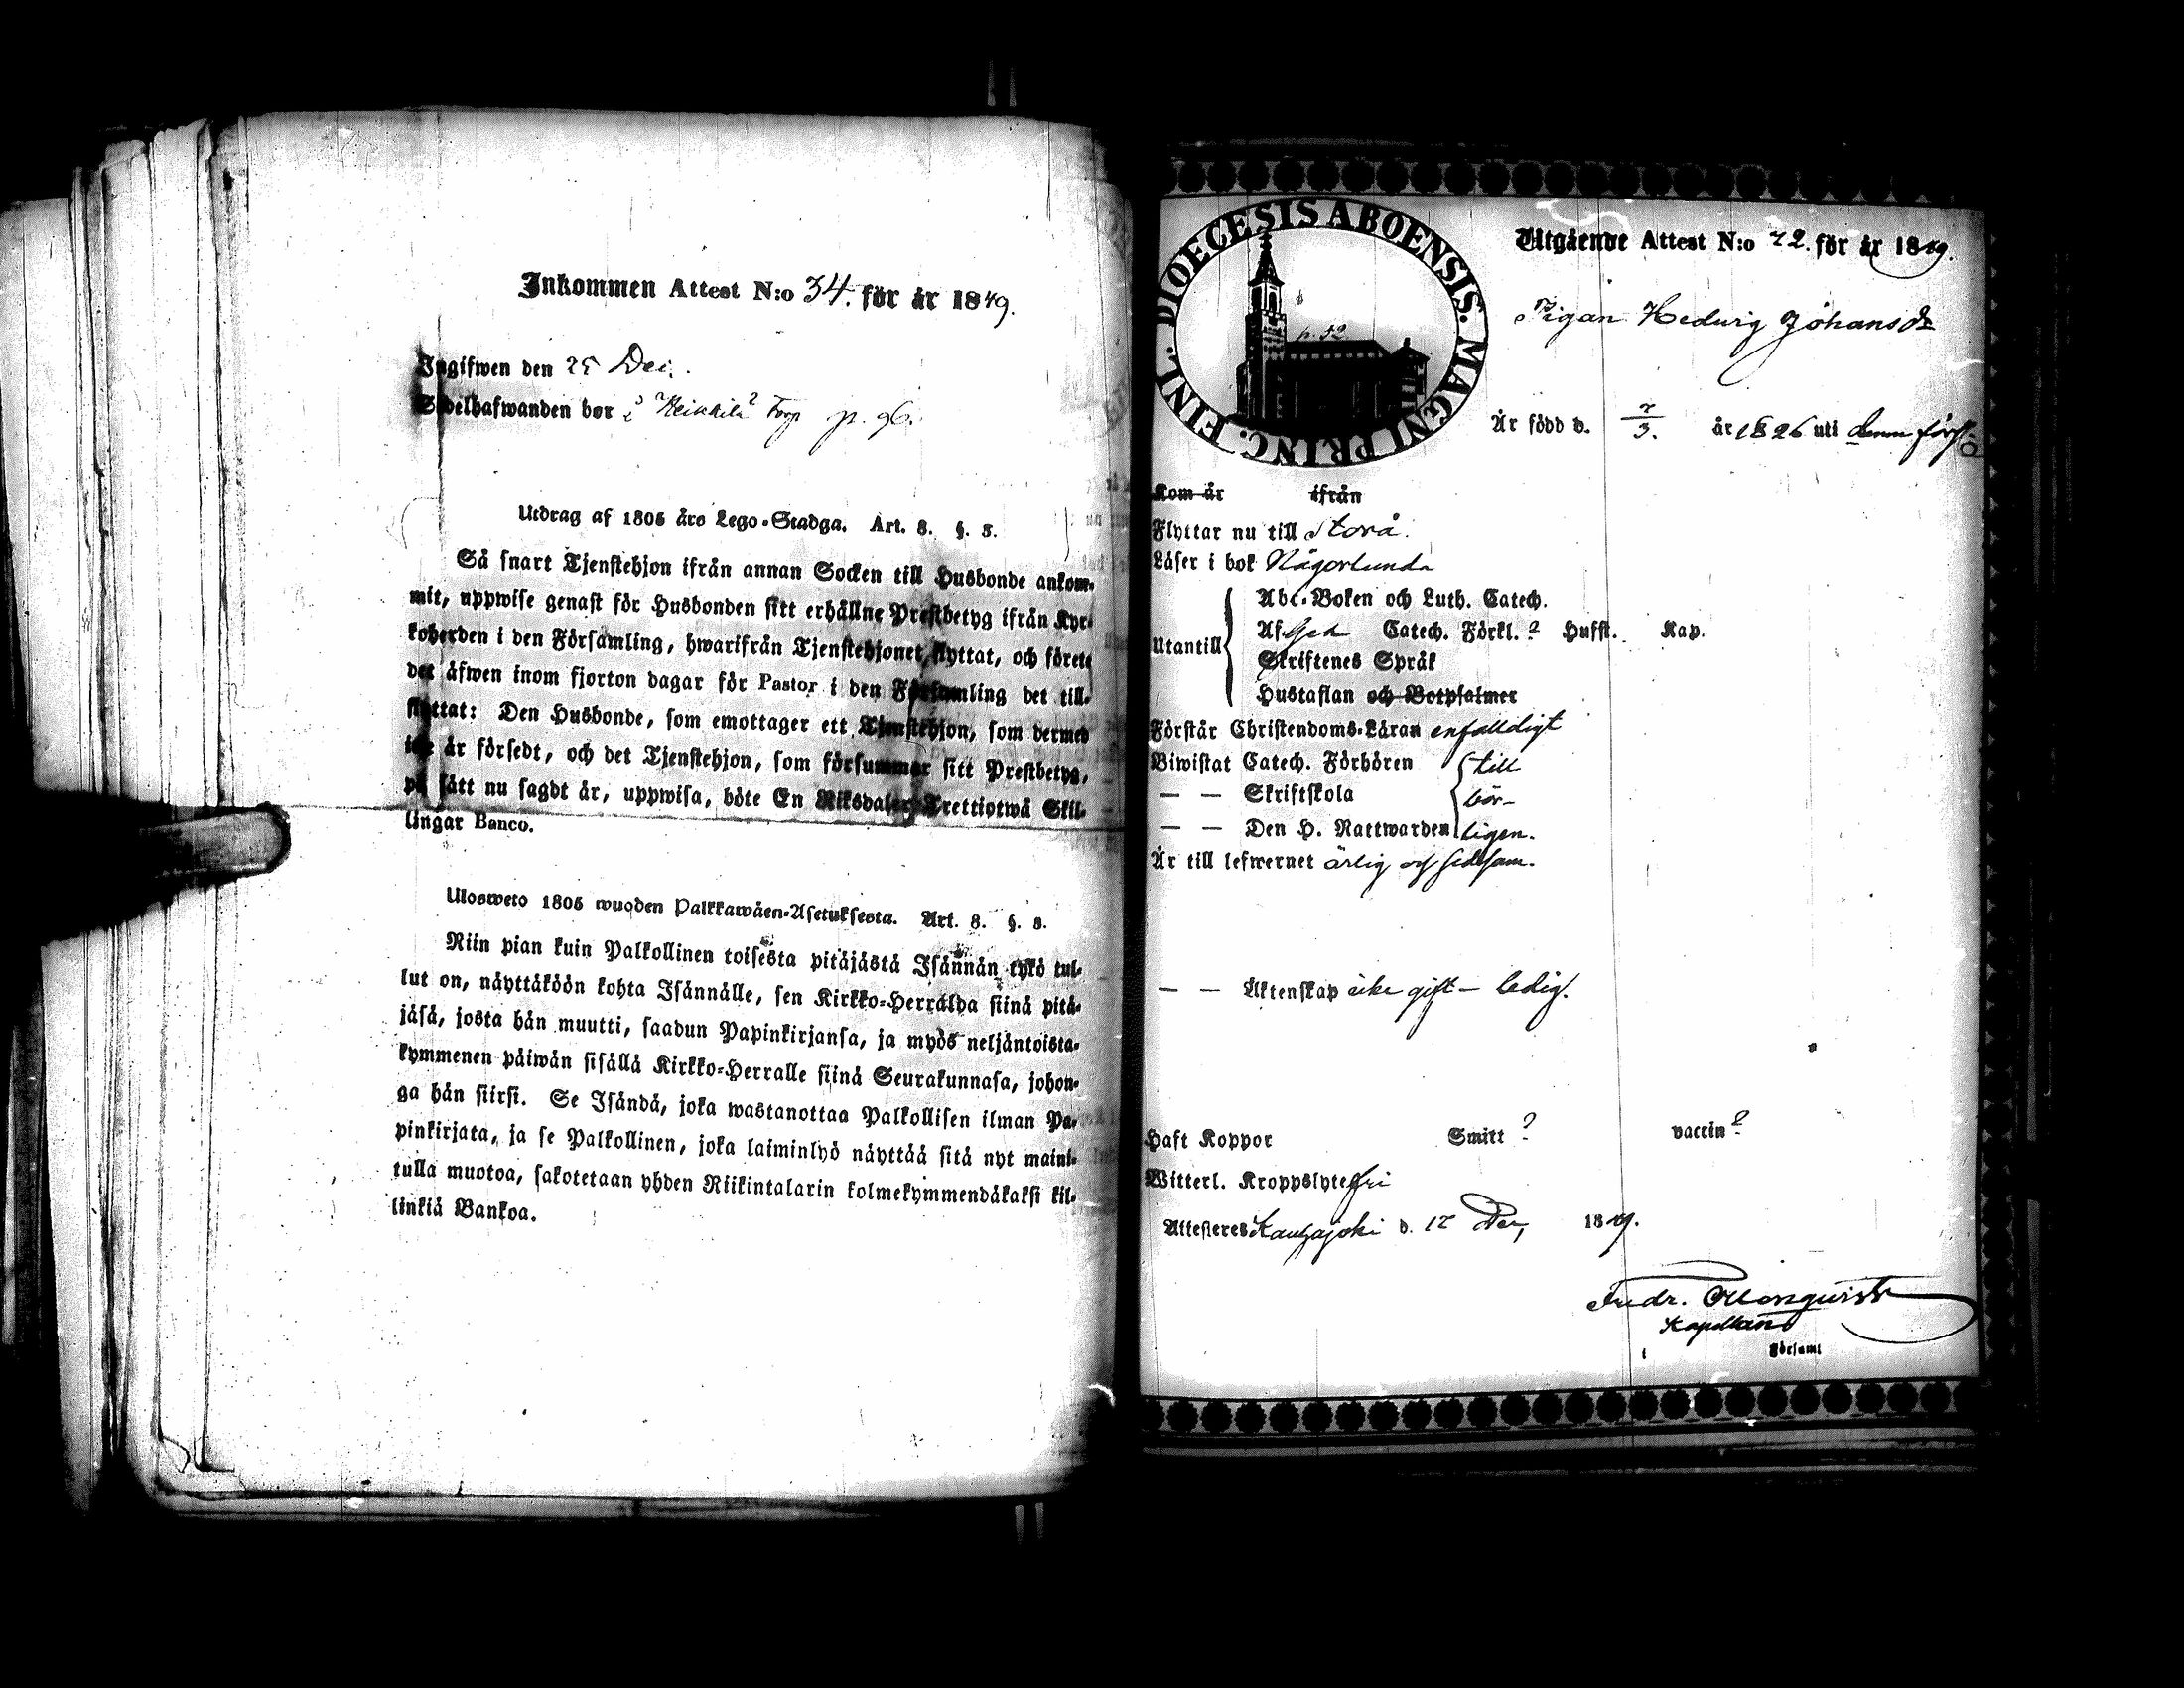 Inkommen Attest N:o 34. för år 1849.
Ingifwen den 25 Dec.
Sedelhafwanden bor i Heikkilä Torp p. 96.
Utdrag af 1805 års Lego-Stadga. Art. 8. §. 3.
Så snart Tjenstehjon ifrån annan Socken till Husbonde ankom-
mit, uppwise genast för Husbonden sitt erhållne Prestbetyg ifrån Kyr-
koherden i den Församling, hwarifrån Tjenstehjonet flyttat, och förete
det äfwen inom fjorton dagar för Pastor i den Församling det till-
flyttat: Den Husbonde, som emottager ett Tjenstehjon, som dermed
icke är försedt, och det Tjenstehjon, som försummar sitt Prestbetyg,
på sätt nu sagdt är, uppwisa, böte En Riksdaler Trettiotwå Skil-
lingar Banco.
Ulosweto 1805 wuoden Palkkawäen-Asetuksesta. Art. 8. §. 3.
Niin pian kuin Palkollinen toisesta pitäjästä Isännän tykö tul-
lut on, näyttäköön kohta Isännälle, sen Kirkko-Herralda siinä pitä-
jäsä, josta hän muutti, saadun Papinkirjansa, ja myös neljäntoista-
kymmenen päiwän sisällä Kirkko-Herralle siinä Seurakunnasa, johon-
ga hän siirsi. Se Isändä, joka wastanottaa Palkollisen ilman Pa-
pinkirjata, ja se Palkollinen, joka laiminlyö näyttää sitä nyt maini-
tulla muotoa, sakotetaan yhden Riikintalarin kolmekymmendäkaksi kil-
linkiä Bankoa.
DIOECESIS ABOENSIS. MAGNI PRINC. FINL.
p. 52
Utgående Attest N:o 72. för år 1849.
Pigan Hedwig Johansdr
Är född d. 7/3. år 1826 uti denna förs.
Kom år ifrån
Flyttar nu till Storå.
Läser i bok Någorlunda
Utantill
Abc-Boken och Luth. Catech.
Af Catech. Förkl. ? Hufst. Kap.
Skriftenes Språk
Hustaflan och Botpsalmer
Förstår Christendoms-Läran enfalldigt
Biwistat Catech. Förhören till
— — Skriftskola bör-
— — Den H. Nattwarden ligen.
Är till lefwernet ärlig och sedesam.
— — Äktenskap icke gift — ledig.
Haft Koppor Smitt ? vaccin ?
Witterl. Kroppslyte fri
Attesteres Kauhajoki d. 12 Dec, 1849.
Fredr. Ollonqvist
Kapellan
i Församl